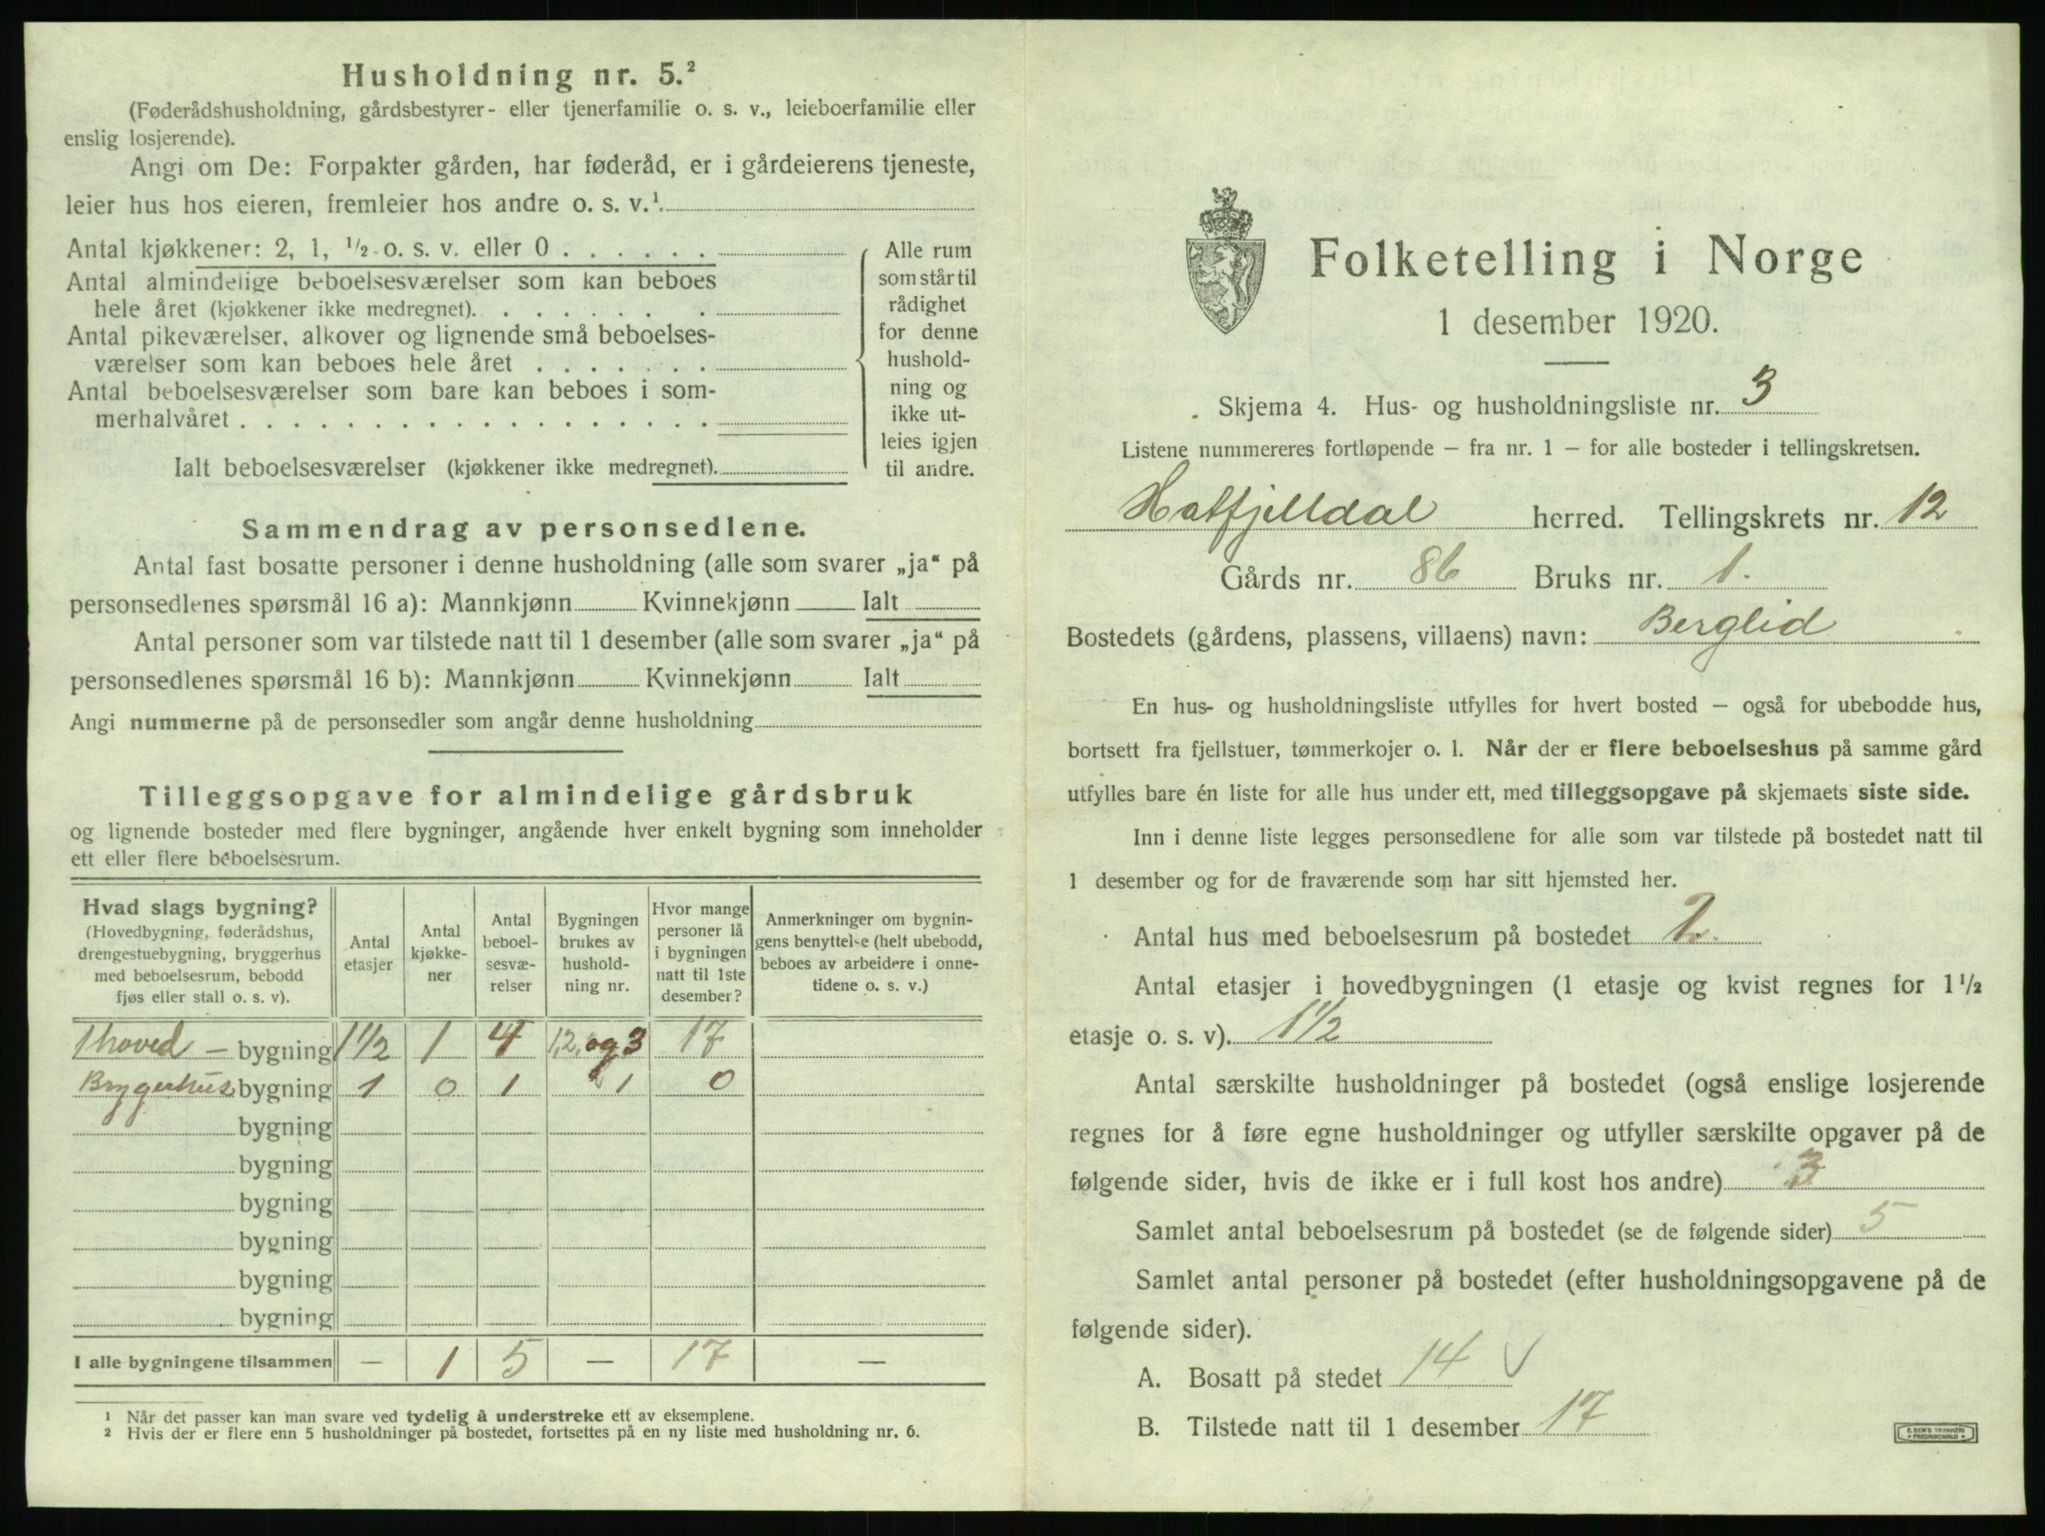 Husholdning nr. 5.²
(Føderådshusholdning, gårdsbestyrer- eller tjenerfamilie o. s. v., leieboerfamilie eller
enslig losjerende).
Angi om De: Forpakter gården, har føderåd, er i gårdeierens tjeneste,
leier hus hos eieren, fremleier hos andre o. s. v.¹
Antal kjøkkener: 2, 1, ½ o. s. v. eller 0 . . . . . .
Antal almindelige beboelsesværelser som kan beboes
hele året (kjøkkener ikke medregnet). . . . . . . .
Antal pikeværelser, alkover og lignende små beboelses-
værelser som kan beboes hele året . . . . . . .
Antal beboelsesværelser som bare kan beboes i som-
merhalvåret . . . . . . . . . . . . . . . . . .
Ialt beboelsesværelser (kjøkkener ikke medregnet).
Alle rum
som står til
rådighet
for denne
hushold-
ning og
ikke ut-
leies igjen
til andre.
Sammendrag av personsedlene.
Antal fast bosatte personer i denne husholdning (alle som svarer „ja“ på
personsedlenes spørsmål 16 a): Mannkjønn Kvinnekjønn Ialt
Antal personer som var tilstede natt til 1 desember (alle som svarer „ja“ på
personsedlenes spørsmål 16 b): Mannkjønn Kvinnekjønn Ialt
Angi nummerne på de personsedler som angår denne husholdning
Tilleggsopgave for almindelige gårdsbruk
og lignende bosteder med flere bygninger, angående hver enkelt bygning som inneholder
ett eller flere beboelsesrum.
Hvad slags bygning?
(Hovedbygning, føderådshus,
drengestuebygning, bryggerhus
med beboelsesrum, bebodd
fjøs eller stall o. s. v).
Antal
etasjer
Antal
kjøkke-
ner
Antal
beboel-
sesvæ-
relser
Bygningen
brukes av
hushold-
ning nr.
Hvor mange
personer lå
i bygningen
natt til 1ste
desember?
Anmerkninger om bygnin-
gens benyttelse (helt ubebodd,
beboes av arbeidere i onne-
tidene o. s. v.)
1 hoved - bygning 1½ 1 4 1,2, og 3 17
Brygerhus bygning 1 0 1 1 0
bygning
bygning
bygning
bygning
bygning
bygning
I alle bygningene tilsammen — 1 5 — 17 —
1 Når det passer kan man svare ved tydelig å understreke ett av eksemplene.
2 Hvis der er flere enn 5 husholdninger på bostedet, fortsettes på en ny liste med husholdning nr. 6.
Folketelling i Norge
1 desember 1920.
Skjema 4. Hus- og husholdningsliste nr. 3
Listene nummereres fortløpende – fra nr. 1 – for alle bosteder i tellingskretsen.
Hatfjelldal herred. Tellingskrets nr. 12
Gårds nr. 86 Bruks nr. 1.
Bostedets (gårdens, plassens, villaens) navn: Berglid
En hus- og husholdningsliste utfylles for hvert bosted – også for ubebodde hus,
bortsett fra fjellstuer, tømmerkojer o. l. Når der er flere beboelseshus på samme gård
utfylles bare én liste for alle hus under ett, med tilleggsopgave på skjemaets siste side.
Inn i denne liste legges personsedlene for alle som var tilstede på bostedet natt til
1 desember og for de fraværende som har sitt hjemsted her.
Antal hus med beboelsesrum på bostedet 2.
Antal etasjer i hovedbygningen (1 etasje og kvist regnes for 1½
etasje o. s. v). 1½
Antal særskilte husholdninger på bostedet (også enslige losjerende
regnes for å føre egne husholdninger og utfyller særskilte opgaver på de
følgende sider, hvis de ikke er i full kost hos andre) 3
Samlet antal beboelsesrum på bostedet (se de følgende sider) 5
Samlet antal personer på bostedet (efter husholdningsopgavene på de
følgende sider).
A. Bosatt på stedet 14 √
B. Tilstede natt til 1 desember 17